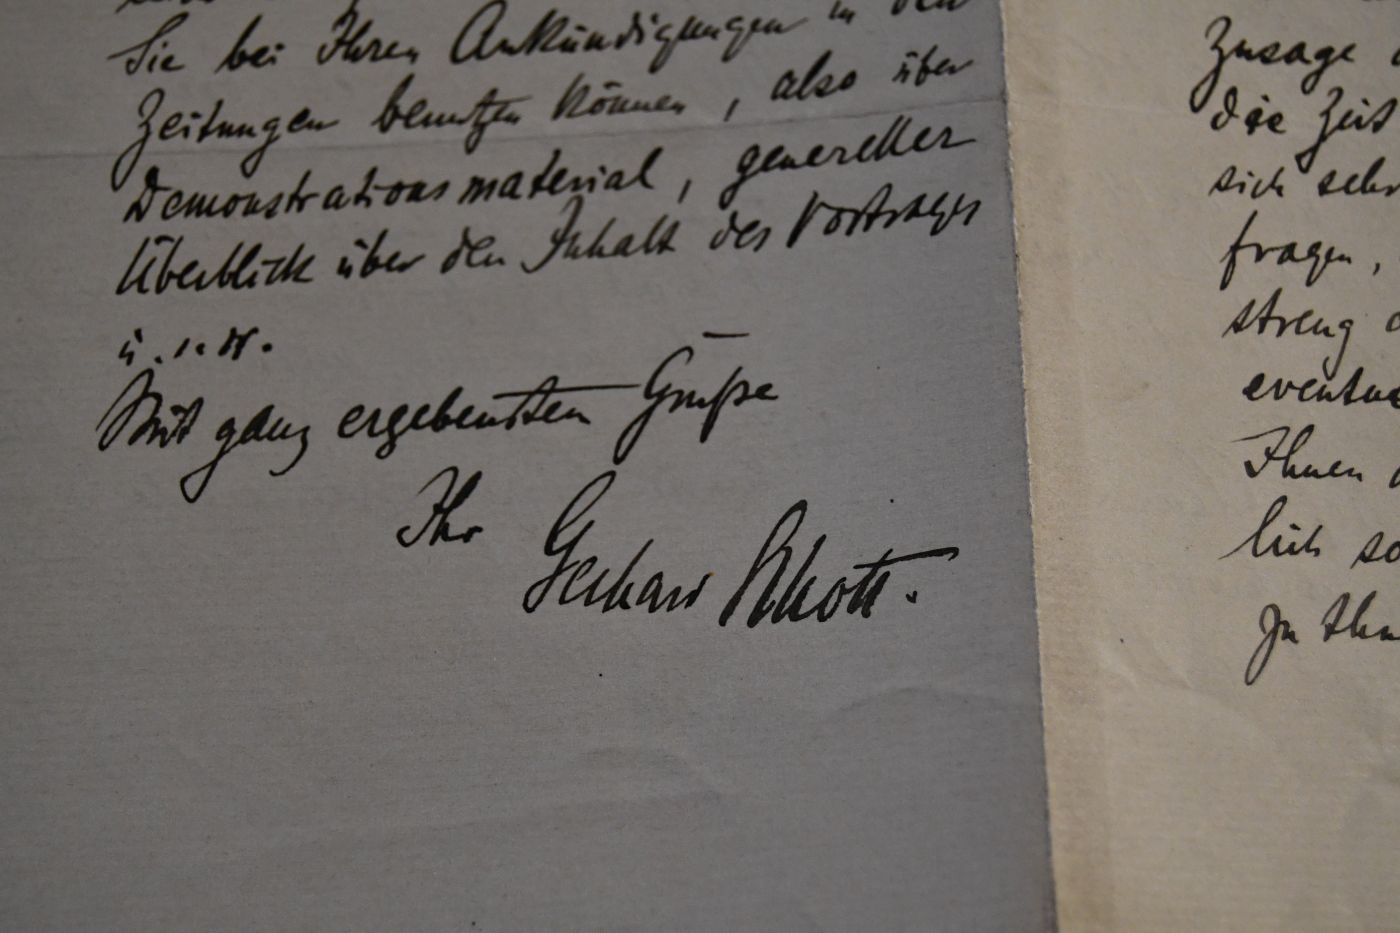 Sie bei Ihren Ankündigungen in den
Zeitungen benutzen können, also über
Demonstrationsmaterial, genereller
Überblick über den Inhalt des Vortrages
u.s.w.
Mit ganz ergebensten Grüßen
Ihr Gerhard Schott.
Zusage
die Zeit
sich sehr
fragen,
streng
Ihnen
lich so